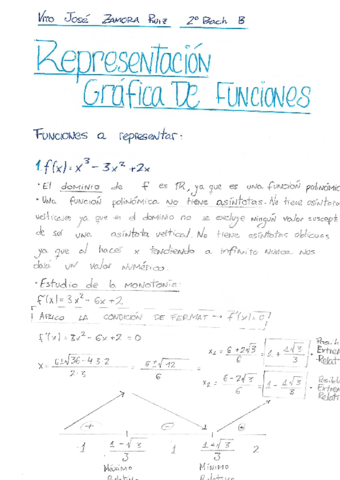 Vito José Zamora Ruiz 2º Bach B
Representación
Gráfica De Funciones
Funciones a representar:
1. f(x) = x³ - 3x² + 2x
• El dominio de f es ℝ, ya que es una función polinómic
• Una función polinómica no tiene asíntotas. No tiene asíntota
verticales ya que en el dominio no se excluye ningún valor suscept
de ser una asíntota vertical. No tiene asíntotas oblicuas
ya que al hacer x tendiendo a infinito nunca nos
dará un valor numérico.
• Estudio de la monotonía:
f'(x) = 3x² - 6x + 2
Aplico la condición de Fermat → f'(x) = 0
f'(x) = 3x² - 6x + 2 = 0
x = 6±√36-4·3·2 / 2·3 = 6±√12 / 6
x₁ = 6+2√3 / 6 = 1+√3 / 3 Posib
Extre
Relat
x₂ = 6-2√3 / 6 = 1-√3 / 3 Posibl
Extre
Relati
+ - +
1 1-√3 / 3 1 1+√3 / 3 2
Máximo Mínimo
Relativo Relativo